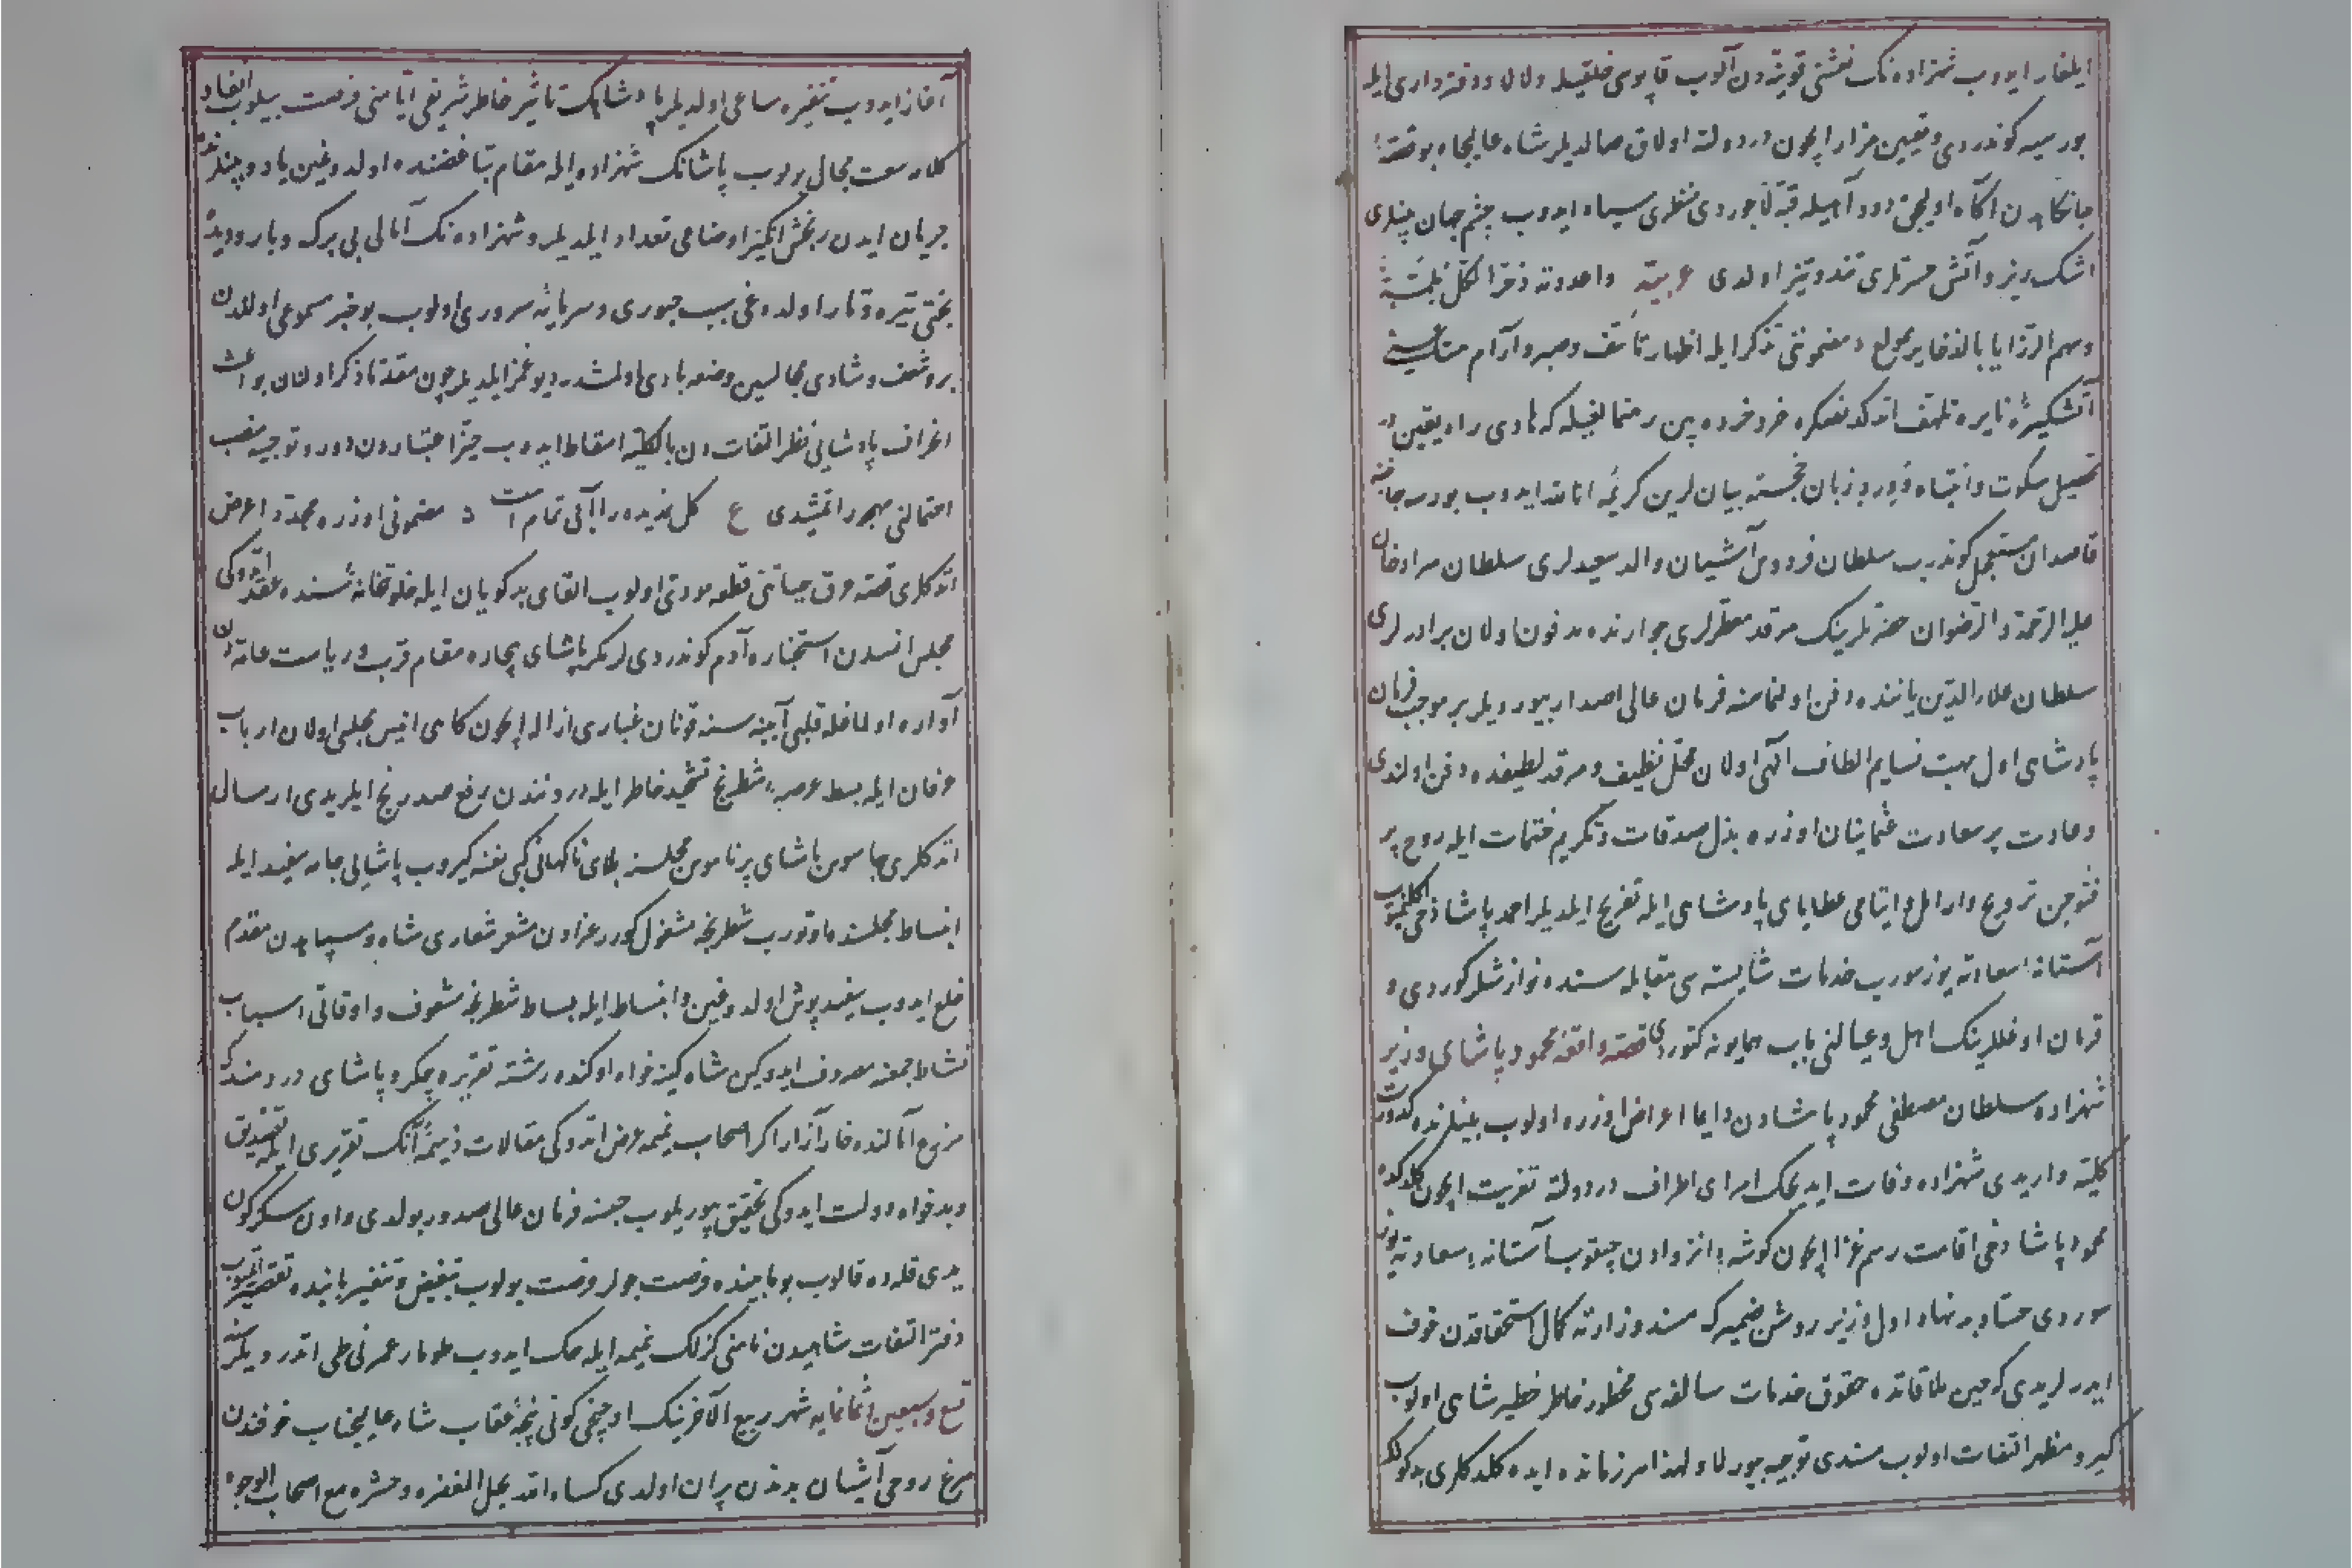 ایلغار ایدوب شهزاده نک نعشنی قونیه دن آلوب قاپوسی خلقیله و لالا و دفترداری ایله
بورسیه کوندردی و تعیین مزار ایچون در دولته اولاق صالدیلر شاه عالیجاه بو قصهٔ
جانکاهدن آکاه اولیجق دود آهیله قبهٔ لاجوردی منظری سیاه ایدوب چشم جهان بینلری
اشک ریز و آتش حسرتلری تند و تیز اولدی عربیة
و سهم الرزایا بالذخایر مولع مضمونی تذکر ایله اظهار تأسف و صبر و آرام
آتشکیرهٔ نایرهٔ تلهف اتدکدنصکره خرد خرده بین رهنمالغیله که هادی راه یقین در
تحصیل سکوت و انتباه بیوروب زبان خجسته بیانلرین کریمهٔ انا لله ایدوب بورسه جانبنه
قاصدان مستعجل کوندرب سلطان فردوس آشیان والد سعیدلری سلطان مراد خان
علیه الرحمة و الرضوان حضرتلرینک مرقد معطرلری جوارنده مدفون اولان برادرلری
سلطان علاء الدین یاننده دفن اولنماسنه فرمان عالی اصدار بیوردیلر بر موجب فرمان
پادشاهی اول مهبت نسایم الطاف الهی اولان محل نظیف و مرقد لطیفده دفن اولندی
و عادت پر سعادت عثمانیان اوزره بذل صدقات و تکریم ختمات ایله روح پر
فتوحن ترویح و ارامل و ایتامی عطایای پادشاهی ایله تفریح ایلدیلر احمد پاشا دخی
آستانهٔ سعادته یوز سورب خدمات شایسته سی مقابله سنده نوازشلر کوردی و
قرمان اوغللرینک اهل و عیالنی باب همایونه کتوردی قصهٔ واقعهٔ محمود پاشای وزیر
شهزاده سلطان مصطفی محمود پاشادن دایما اعراض اوزره اولوب بینلرنده کدورت
کلیه واریدی شهزاده وفات ایدیجک امرای اطراف در دولته تعزیت ایچون کلدکده
محمود پاشا دخی اقامت رسم عزا ایچون کوشهٔ انزوادن چیقوب آستانهٔ سعادته یوز
سوردی حساد بدنهاد اول وزیر روشن ضمیر که مسند وزارته کمال استحقاقدن خوف
ایدرلریدی که حین ملاقاتده حقوق خدمات سالفه سی محظور خاطر خطیر شاهی اولوب
کیرو مظهر التفات اولوب مسندی توجیه بیوریلا و لهذا هر زمانده ایده کلدکلری بدکولک
آغاز ایدوب تنفیره ساعی اولدیلر پادشاهک تاثیر خاطر شریفی ایامنی فرصت بیلوب القاء
کلامه سعت مجال بولوب پاشانک شهزاده ایله مقام تباغضنده اولدوغین یاد و بینلرنده
جریان ایدن رنجش انکیز اوضاعی تعداد ایلدیلر و شهزاده نک آمالی بی برک و بار و دیدهٔ
بختی تیره و تار اولدوغی سبب حبوری و سرمایهٔ سروری اولوب بو خبر مسموعی اولالدن
برو شعف و شادی مجالسین وضعه بادی اولمشدر دیو غمز ایلدیلر چون مقدما ذکر اولنان بواعث
اغراف پادشاهی نظر التفاتدن بالکلیه اسقاط ایدوب حیز اعتباردن دور و توجیه منصب
احتمالنی مهجور اتمشدی ع کل ندیده را آبی تمام است مضمونی اوزره مجددا عرض
اتدکلری قصه عرق حیاتنی قطعه مودی اولوب القای بدکویان ایله خلوتخانه سنده عقد اتدوکی
مجلس انسدن استخباره آدم کوندردیلر مکر پاشای بیچاره مقام قرب و ریاست عامه دن
آواره اولماغله قلبی آیینه سنه قونان غباری ازاله ایچون کاهی انیس مجلسی اولان ارباب
عرفان ایله بسط عرصهٔ شطرنج تشحیذ خاطر ایله دروننندن رفع صد رنج ایلریدی ارسال
اتدکلری جاسوس پاشای پرناموس مجلسنه بلای ناکهانی کبی نفسه کیروب پاشایی جامه سفید ایله
انبساط مجلسنده اوتورب شطرنجه مشغول کورر عزادن مشعر شعاری شاه و سپاهدن مقدم
خلع ایدوب سفید پوش اولدوغین و انبساط ایله بساط شطرنجه مشعوف و اوقاتی اسباب
نشاط جمعنه مصروف ایدوکین شاه کینه خواه اوکنده رشته تقریره چکر و پاشای دردمندک
مزرع آمالنده خار آزار اکر اصحاب نمیمه عرض اتدوکی مقالات ذمیمه آنک تقریری ایله تصدیق
و بدخواه دولت ایدوکی تحقیق بیوریلوب حبسنه فرمان عالی صدور بولدی و اون سکز کون
یدی قله ده قالوب بو مابینده فرصت جولر فرصت بولوب تبغیض و تنفیر بابنده تقصیر اتمیوب
دفتر التفات شاهیدن نامنی کزلک نمیمه ایله حک ایدوب طومار عمرنی طی اتدردیلر
تسع و سبعین و ثمانمایه شهر ربیع الآخرینک اوچنجی کونی پنجهٔ عقاب شاه عالیجناب خوفندن
مرغ روحی آشیان بدندن پران اولدی کساه الله بحلل المغفره و حشره مع اصحاب الوجوه